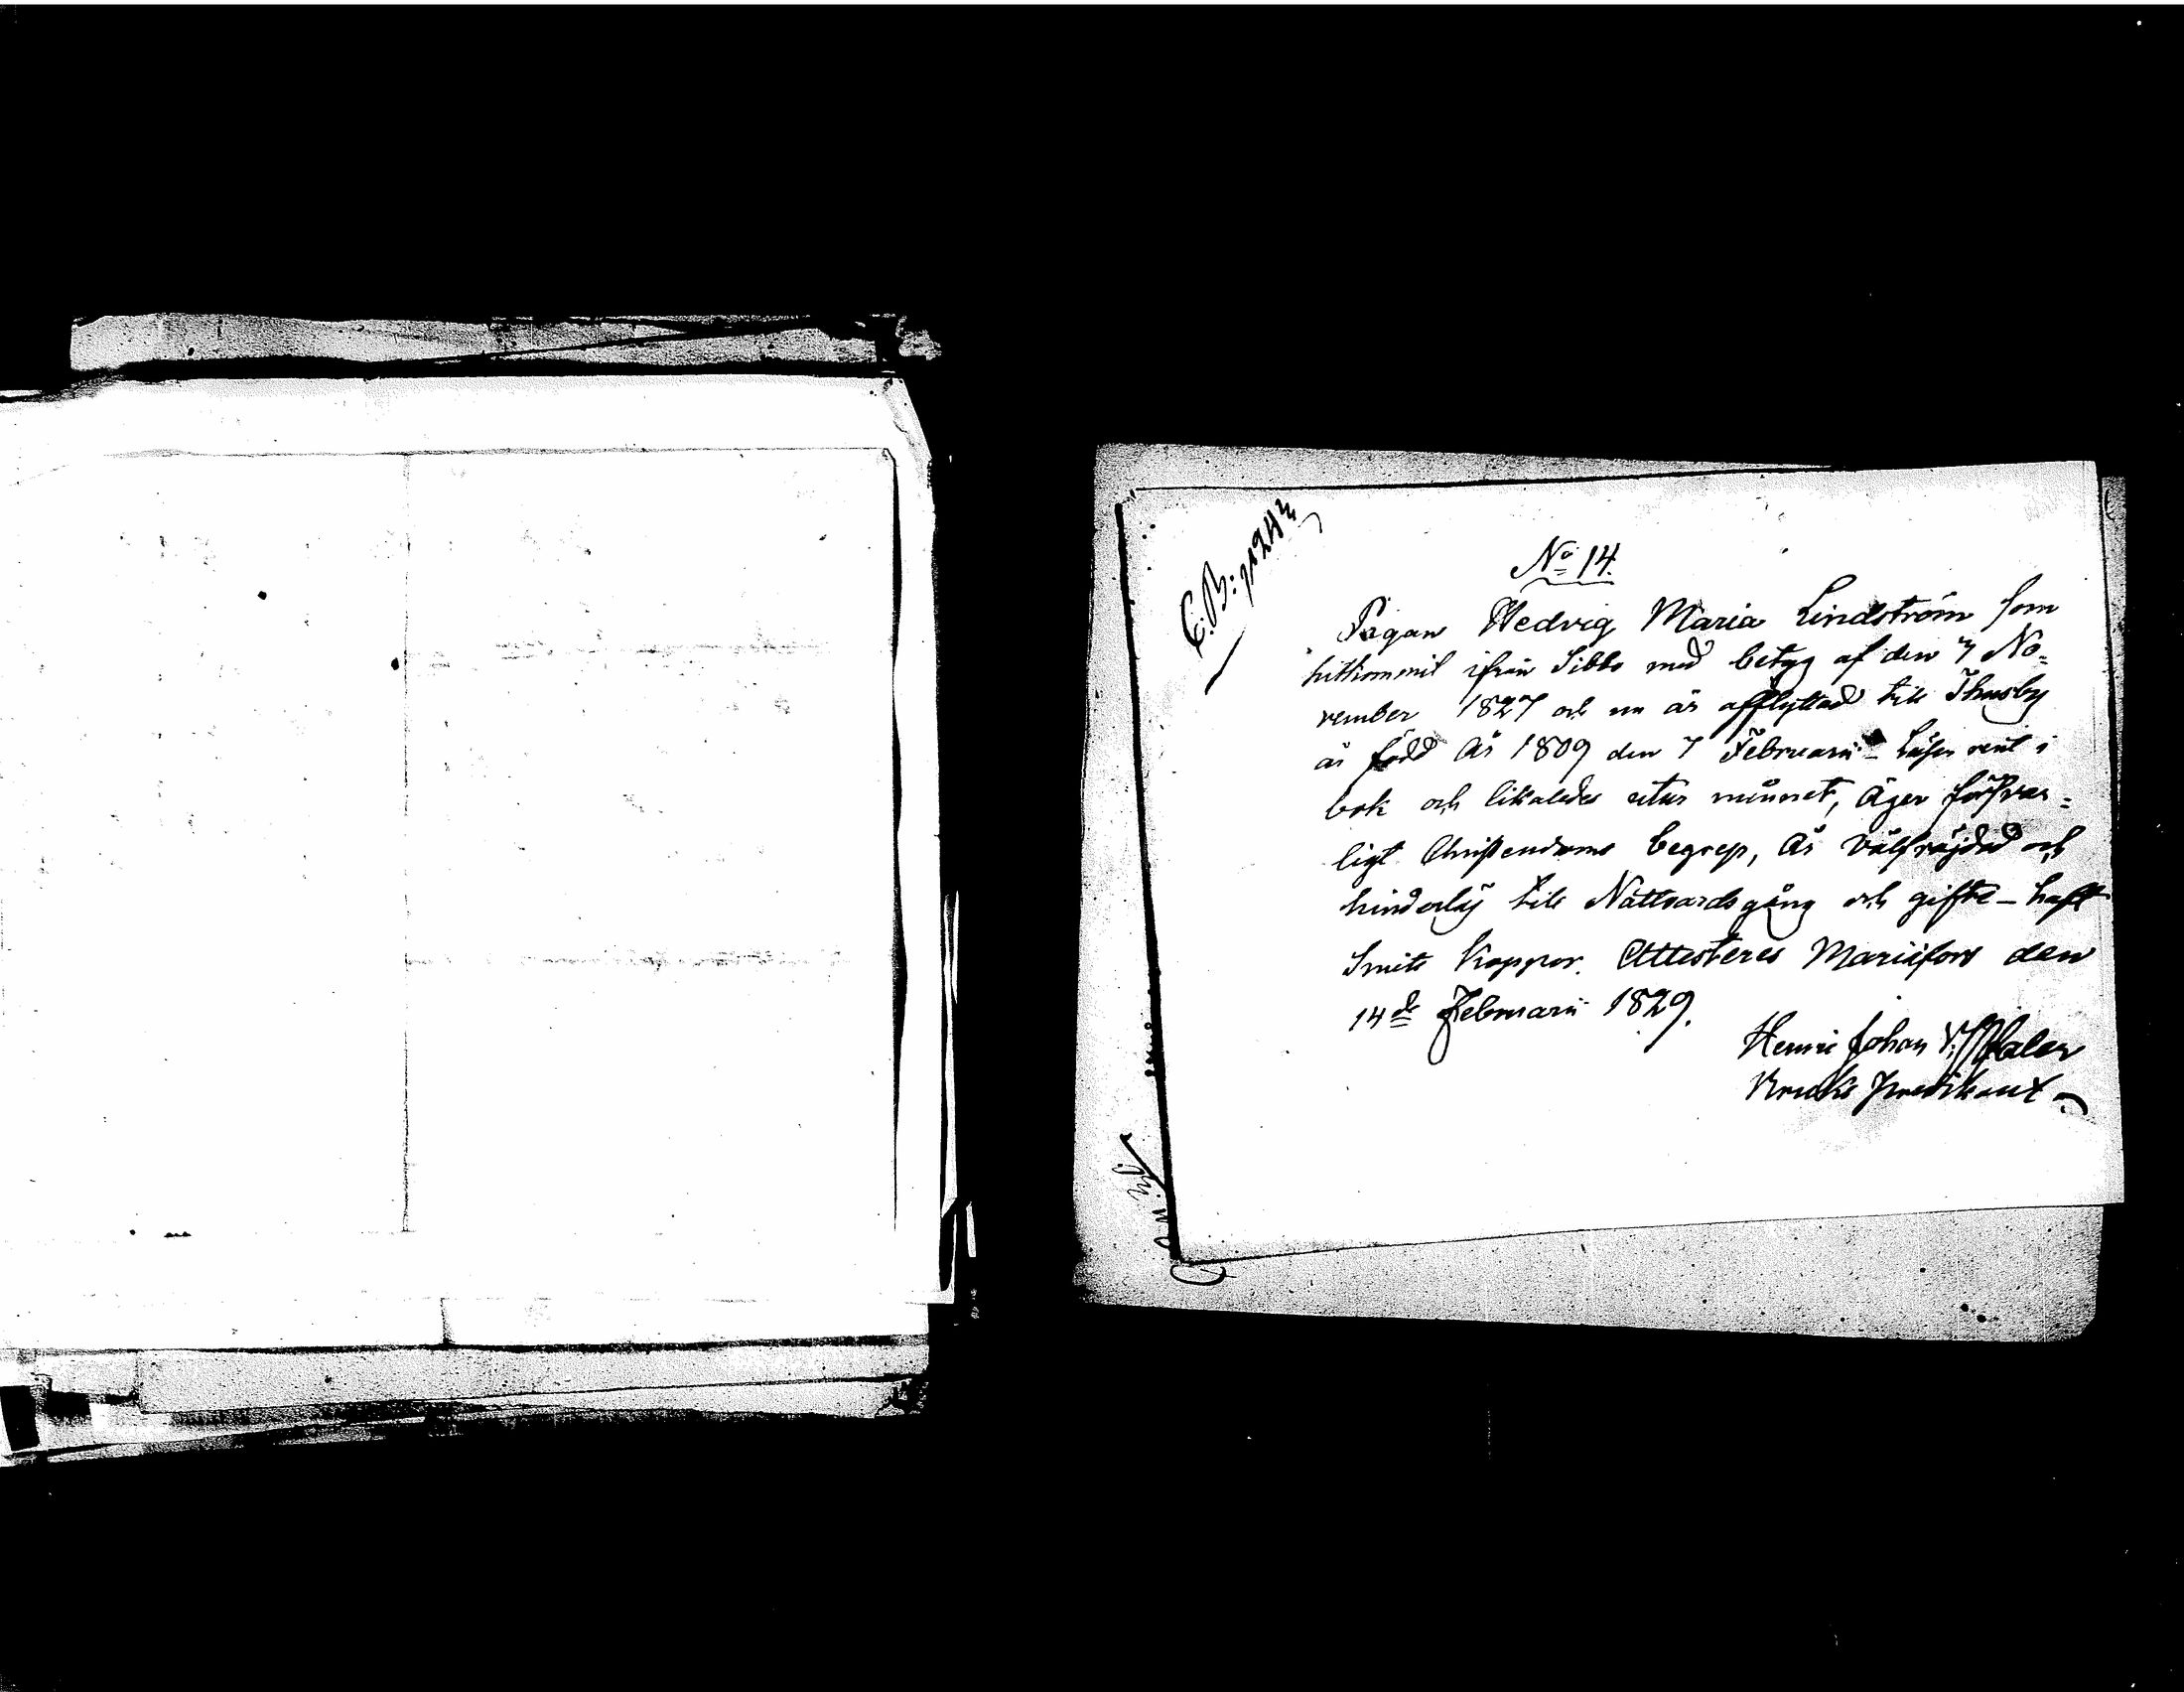 No 14.
Pigan Hedvig Maria Lindström som
hitkommit ifrån Sibbo med betyg af den 7 No=
vember 1827 och nu är afflyttad till Thusby
är född År 1809 den 7 Februarii – Läser rent i
bok och likaledes utur minnet, Äger försvar=
ligt Christendoms begrep, Är välfräjdad och
hinderlös till Nattvardsgång och gifte – haft
Smitt Koppor. Attesteres Mariæfors den
14de Februarii 1829.
Henric Johan
Bruks Predikant